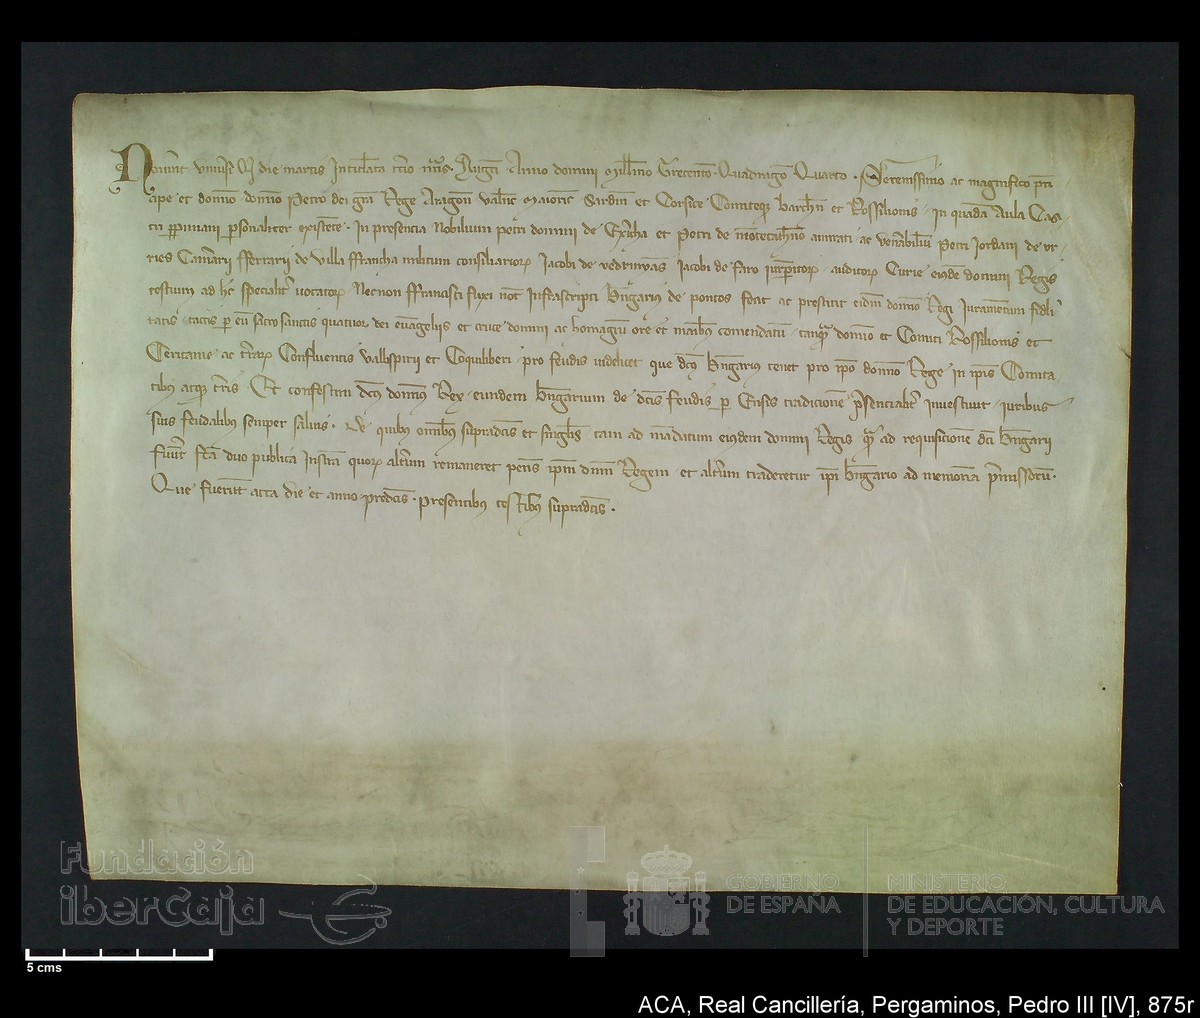 Noverint univ̄si q̄ die martis Intitulata t̄cio nōas Augusti Anno domini Mill̄mo Trecentō Quadragē Quarto. Serenissimo ac magnifico p̄ri
cipe et domino domino Petro dei gr̄a Rege Aragon̄ valn̄c̄ Maioric̄ Sardin̄ et Corsice Comiteq̄ barch̄n et Rossilionis in quadā Aula Cas
tri ꝑpiniani ꝑsonaliter existēte. In presencia Nobilium petri domini de Ex̄icha et Petri de mōtecath̄no amirati ac ven̄abiliū Petri Jordani de ur
ries Cam̄arii fferrarii de villa ffrancha militum consiliarioꝝ Jacobi de Jacobi de faro iurꝑitoꝝ auditoꝝ Curie eiusdē domini Regis
testium ad h̄ specialit̄ vocatoꝝ Necnon ffrancisci fluxi not̄ Infrascripti b̄ngarius de pontos fecit ac prestitit eidem domino Regi Iuramentum fideli
tatis tactis ꝑ eū sacrosanctis quatuor dei euāgeliis et cruce domini ac homagiū ore et manibus comendatū tanquā domino et Comiti Rossilionis et
Ceritanie ac t̄raꝝ Confluentis vallispirii et Coquiliberi pro feudis videlicet que dc̄us b̄ngarius tenet pro ip̄o domino Rege in ip̄is Comita
tibus atq̄ t̄ris Et confestim dc̄us dominus Rex eundem b̄ngarium de dc̄is feudis ꝑ Ensis tradicionē p̄sencialit̄ investivit iuribus
suis feudalibus semper salvis. De quibus om̄ibus supradc̄is et singl̄is tam ad mādatum eiusdem domini Regis q̄ ad requisicionē dc̄i b̄ngarii
fiunt̄ fc̄a duo publica Instr̄a quoꝝ alt̄um remaneret penes ip̄m dn̄m Regem et alt̄um traderetur ip̄i b̄ngario ad memoriā p̄missorū.
Que fuer̄t acta die et anno predc̄is presentibus testibus supradc̄is.
Fundación
iberCaja
GOBIERNO
DE ESPAÑA
MINISTERIO
DE EDUCACIÓN, CULTURA
Y DEPORTE
5 cms
ACA, Real Cancillería, Pergaminos, Pedro III [IV], 875r